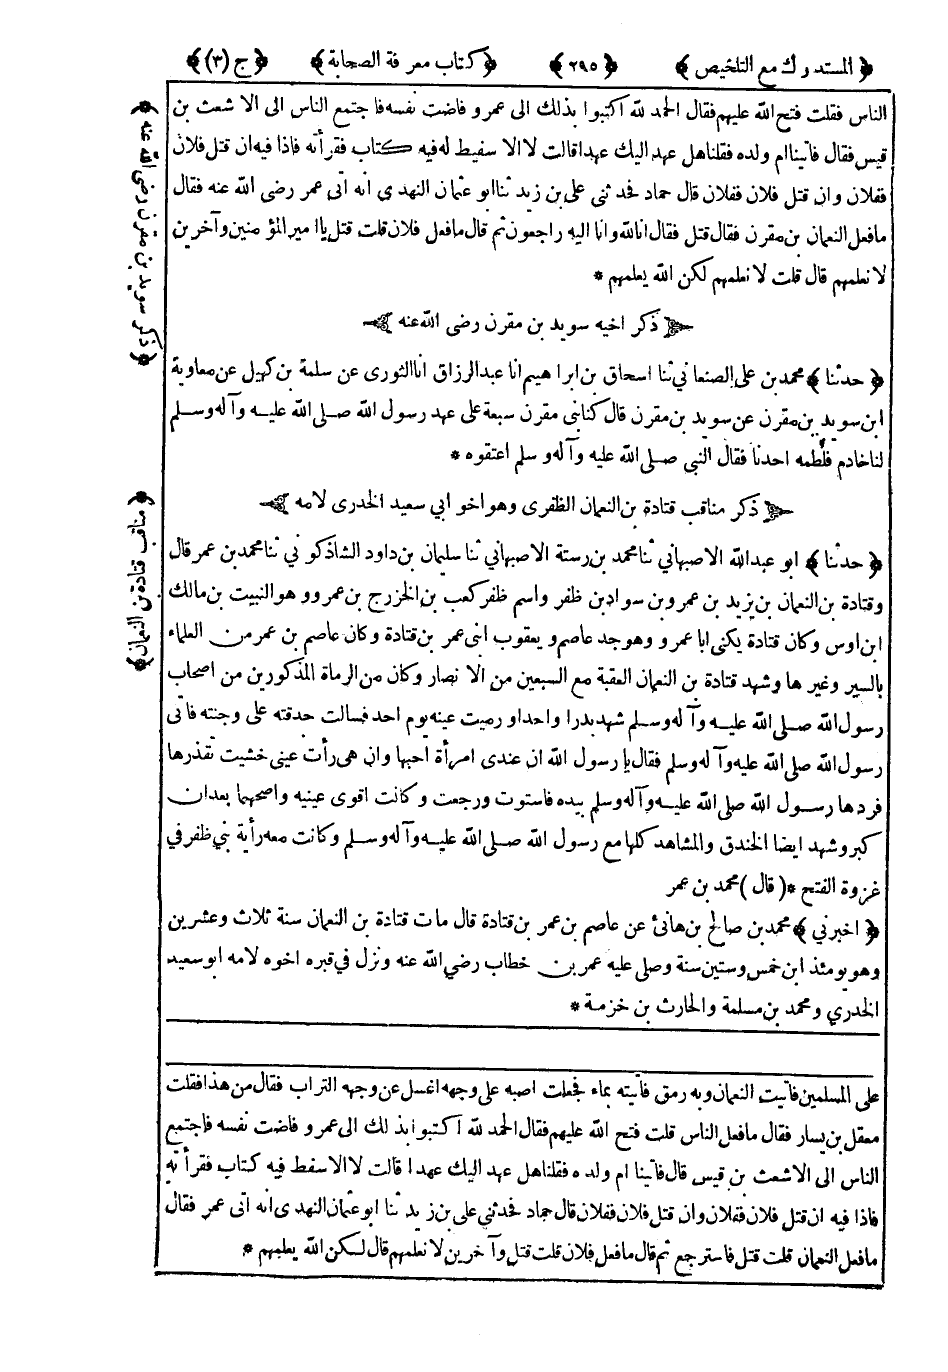 ﴿ المستدرك مع التلخيص ﴾ ﴿ ٢٩٥ ﴾ ﴿ كتاب معرفة الصحابة ﴾ ﴿ ج (٣) ﴾
الناس فقلت فتح الله عليهم فقال الحمد لله اكتبوا بذلك الى عمرو فاضت نفسه فاجتمع الناس الى الاشعث بن
قيس فقال فأتينا ام ولده فقلنا هل عهد اليك عهدا قالت لا الا سفيط له فيه كتاب فقرأته فاذا فيه ان قتل فلان
ففلان وان قتل فلان ففلان قال حماد فحدثنى على بن زيد ثنا ابو عثمان النهدى انه اتى عمر رضى الله عنه فقال
ما فعل النعمان بن مقرن فقال قتل فقال انا لله وانا اليه راجعون ثم قال ما فعل فلان قلت قتل يا امير المؤمنين وآخرين
لا نعلمهم قال قلت لا نعلمهم لكن الله يعلمهم *
ذكر اخيه سويد بن مقرن رضى الله عنه
﴿ حدثنا ﴾ محمد بن على الصنعاني ثنا اسحاق بن ابراهيم انا عبد الرزاق انا الثورى عن سلمة بن كهيل عن معاوية
ابن سويد بن مقرن عن سويد بن مقرن قال كنا بنى مقرن سبعة على عهد رسول الله صلى الله عليه وآله وسلم
لنا خادم فلطمه احدنا فقال النبي صلى الله عليه وآله وسلم اعتقوه *
ذكر مناقب قتادة بن النعمان الظفرى وهو اخو ابي سعيد الخدرى لامه
﴿ حدثنا ﴾ ابو عبد الله الاصبهاني ثنا محمد بن رستة الاصبهاني ثنا سليمان بن داود الشاذكوني ثنا محمد بن عمر قال
وقتادة بن النعمان بن يزيد بن عمرو بن سواد بن ظفر واسم ظفر كعب بن الخزرج بن عمرو وهو النبيت بن مالك
ابن اوس وكان قتادة يكنى ابا عمرو وهو جد عاصم ويعقوب ابنى عمر بن قتادة وكان عاصم بن عمر من العلماء
بالسير وغيرها وشهد قتادة بن النعمان العقبة مع السبعين من الانصار وكان من الرماة المذكورين من اصحاب
رسول الله صلى الله عليه وآله وسلم شهد بدرا واحدا ورميت عينه يوم احد فسالت حدقته على وجنته فاتى
رسول الله صلى الله عليه وآله وسلم فقال يا رسول الله ان عندى امرأة احبها وان هى رأت عينى خشيت تقذرها
فردها رسول الله صلى الله عليه وآله وسلم بيده فاستوت ورجعت وكانت اقوى عينيه واصحهما بعد ان
كبر وشهد ايضا الخندق والمشاهد كلها مع رسول الله صلى الله عليه وآله وسلم وكانت معه رأية بني ظفر في
غزوة الفتح * (قال) محمد بن عمر
﴿ اخبرني ﴾ محمد بن صالح بن هانئ عن عاصم بن عمر بن قتادة قال مات قتادة بن النعمان سنة ثلاث وعشرين
وهو يومئذ ابن خمس وستين سنة وصلى عليه عمر بن خطاب رضي الله عنه ونزل في قبره اخوه لامه ابو سعيد
الخدري ومحمد بن مسلمة والحارث بن خزمة *
على المسلمين فأتيت النعمان وبه رمق فأتيته بماء فجعلت اصبه على وجهه اغسل عن وجهه التراب فقال من هذا فقلت
معقل بن يسار فقال ما فعل الناس قلت فتح الله عليهم فقال الحمد لله اكتبوا بذلك الى عمرو فاضت نفسه فاجتمع
الناس الى الاشعث بن قيس قال فأتينا ام ولده فقلنا هل عهد اليك عهدا قالت لا الا سفط فيه كتاب فقرأته
فاذا فيه ان قتل فلان ففلان وان قتل فلان ففلان قال حماد فحدثني على بن زيد ثنا ابو عثمان النهدى انه اتى عمر فقال
ما فعل النعمان قلت قتل فاسترجع ثم قال ما فعل فلان قلت قتل وآخرين لا نعلمهم قال لكن الله يعلمهم *
﴿ ذكر سويد بن مقرن رضى الله عنه ﴾
﴿ مناقب قتادة بن النعمان ﴾